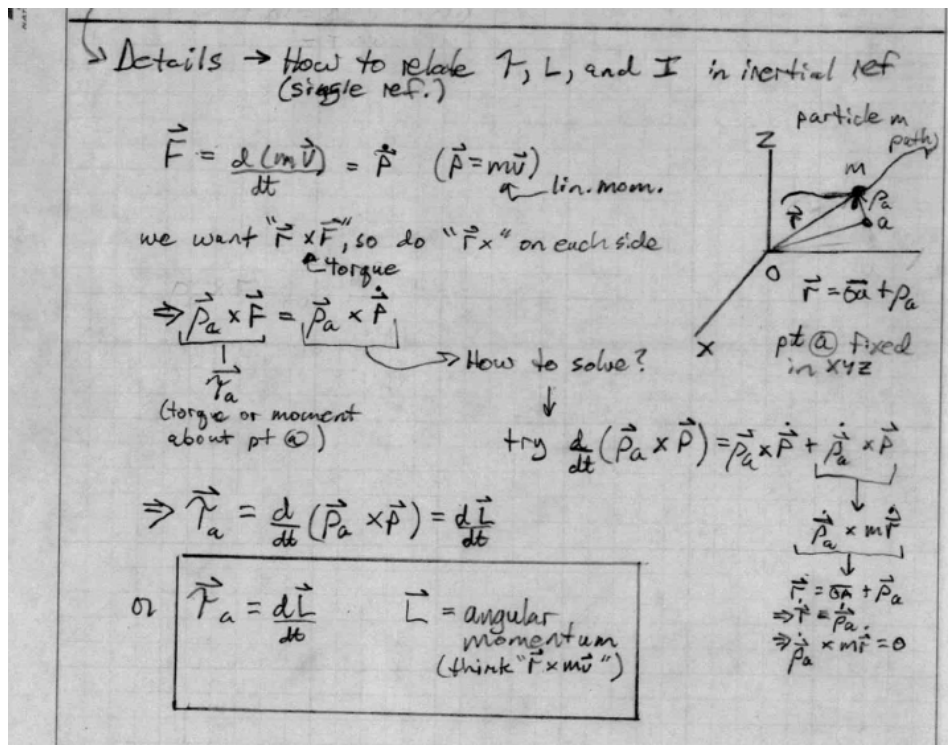 Details → How to relate τ, L, and I in inertial ref
(single ref.)
F⃗ = d(mv⃗)/dt = p⃗̇ (p⃗ = mv⃗)
lin. mom.
we want "r⃗ × F⃗", so do "r⃗ ×" on each side
torque
⇒ ρ⃗ₐ × F⃗ = ρ⃗ₐ × p⃗̇
τ⃗ₐ
(torque or moment
about pt ⓐ)
→ How to solve?
↓
try d/dt (ρ⃗ₐ × p⃗) = ρ⃗ₐ × p⃗̇ + ρ⃗̇ₐ × p⃗
↓
ρ⃗̇ₐ × mr⃗̇
↓
r⃗ = o̅a̅ + ρ⃗ₐ
⇒ r⃗̇ = ρ⃗̇ₐ
⇒ ρ⃗̇ₐ × mr⃗̇ = 0
⇒ τ⃗ₐ = d/dt (ρ⃗ₐ × p⃗) = dL⃗/dt
or τ⃗ₐ = dL⃗/dt L⃗ = angular
momentum
(think "r⃗ × mv⃗")
particle m
path
Z
m
ρₐ
a
r⃗
O
X
r⃗ = o̅a̅ + ρₐ
pt ⓐ fixed
in XYZ